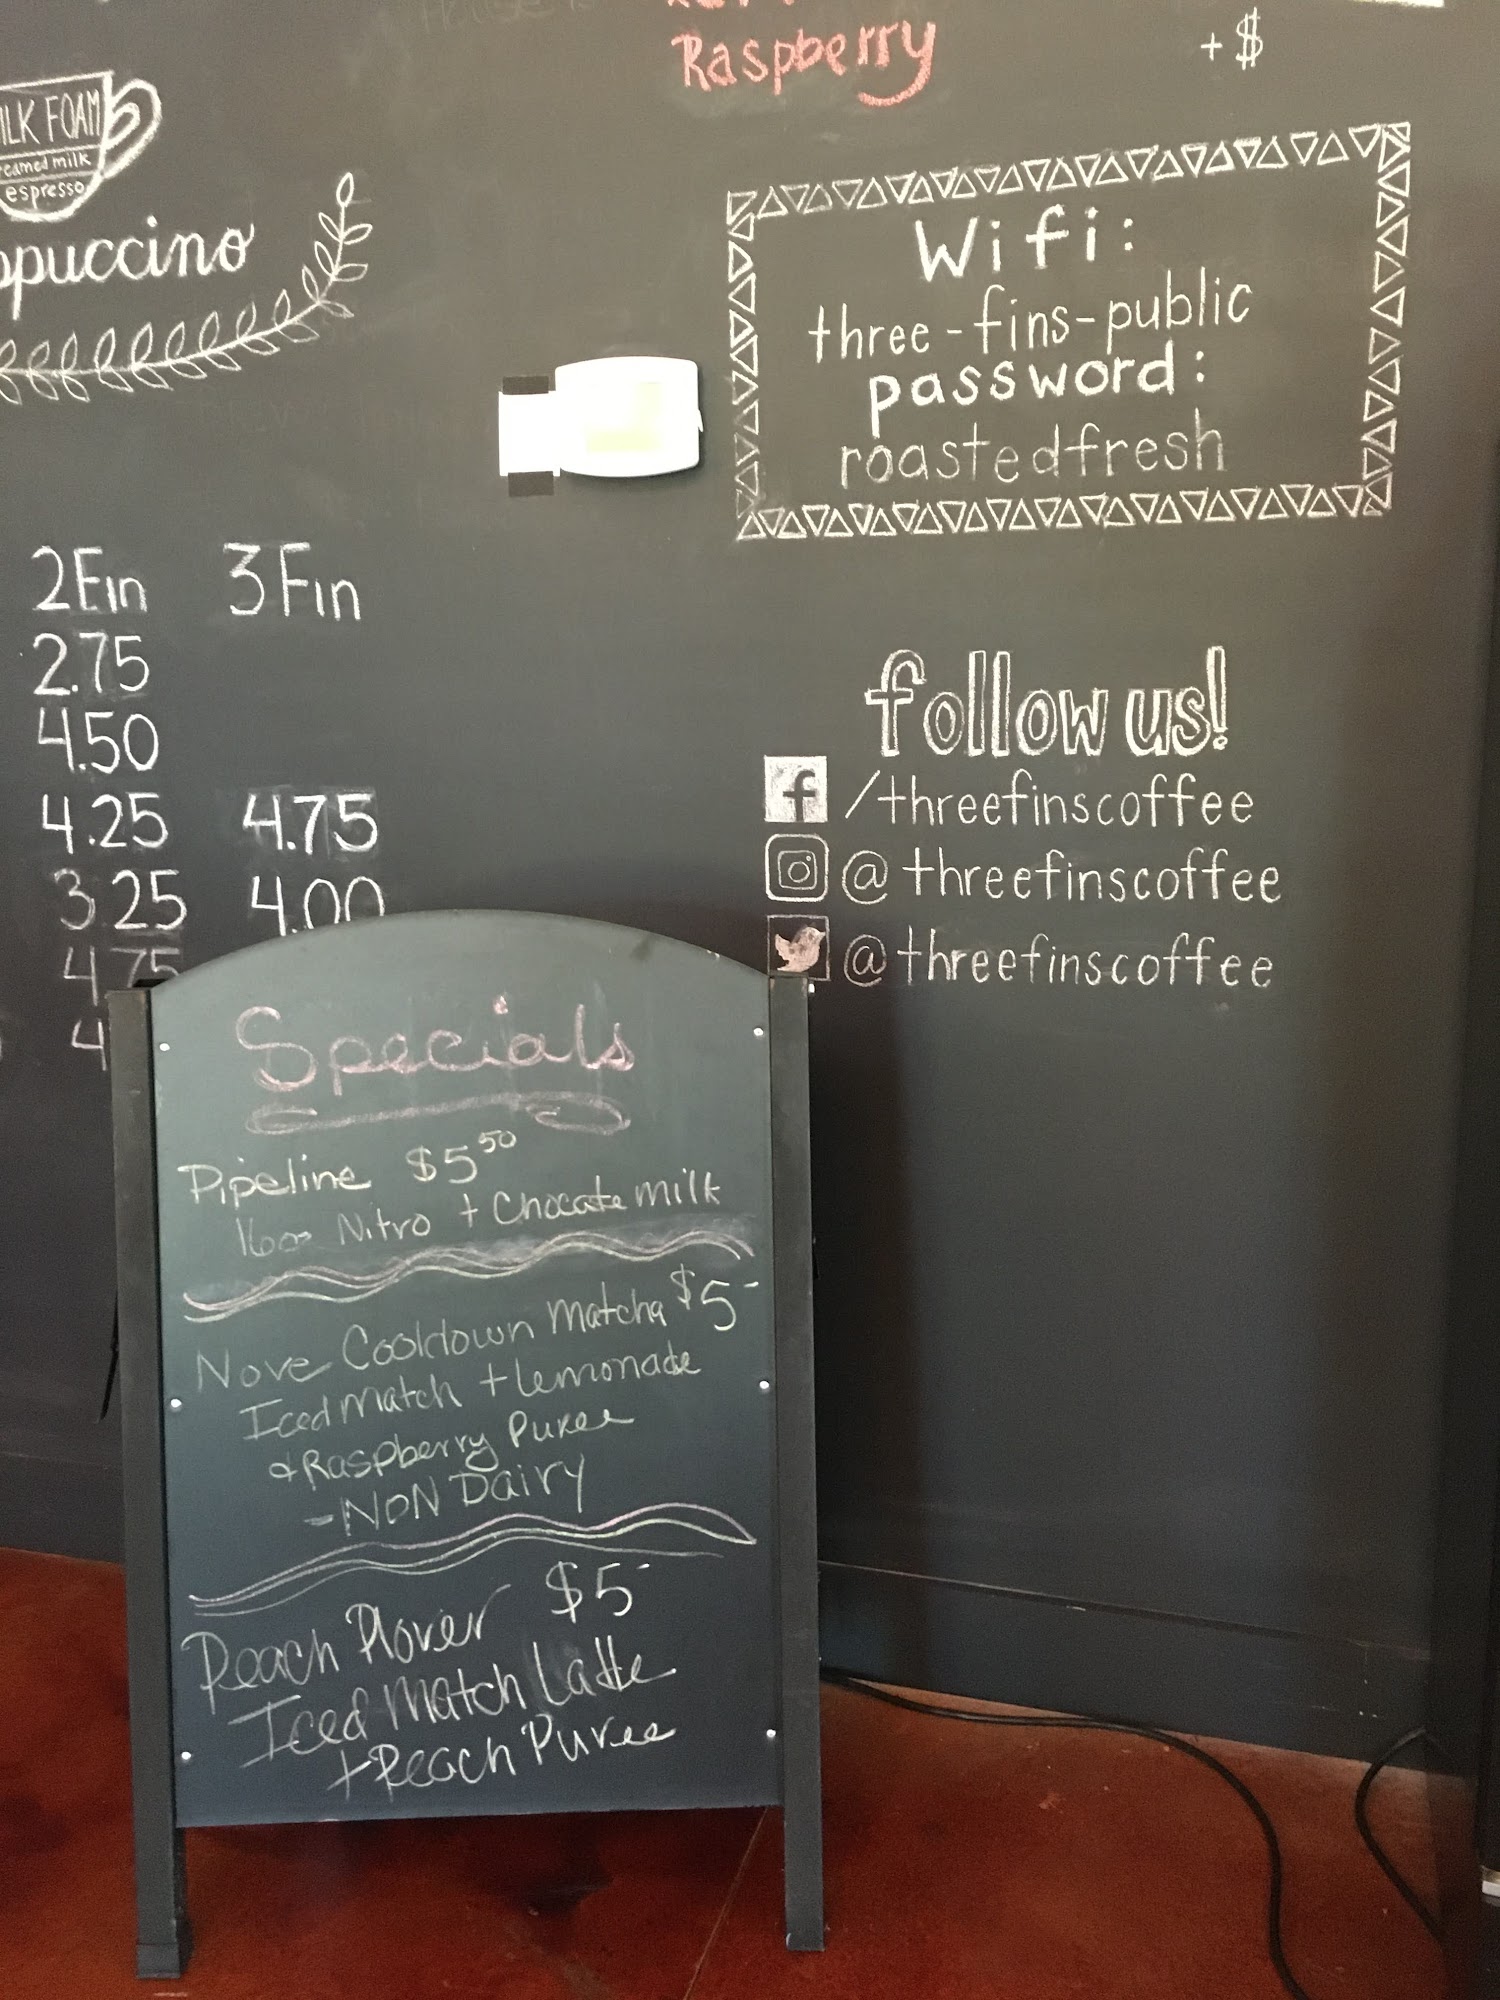 Raspberry
+$
ILK FOAM
eamed milk
espresso
ppuccino
Wifi:
three-fins-public
password:
roastedfresh
2Fin 3Fin
2.75
4.50
4.25 4.75
3.25 4.00
4.75
4
follow us!
f /threefinscoffee
@threefinscoffee
@threefinscoffee
Specials
Pipeline $5.50
16oz Nitro + Chocate milk
Nove Cooldown Matcha $5-
Iced Match + lemonade
& Raspberry Puree
- NON Dairy
Peach Plover $5-
Iced Match Latte
+ Peach Puree